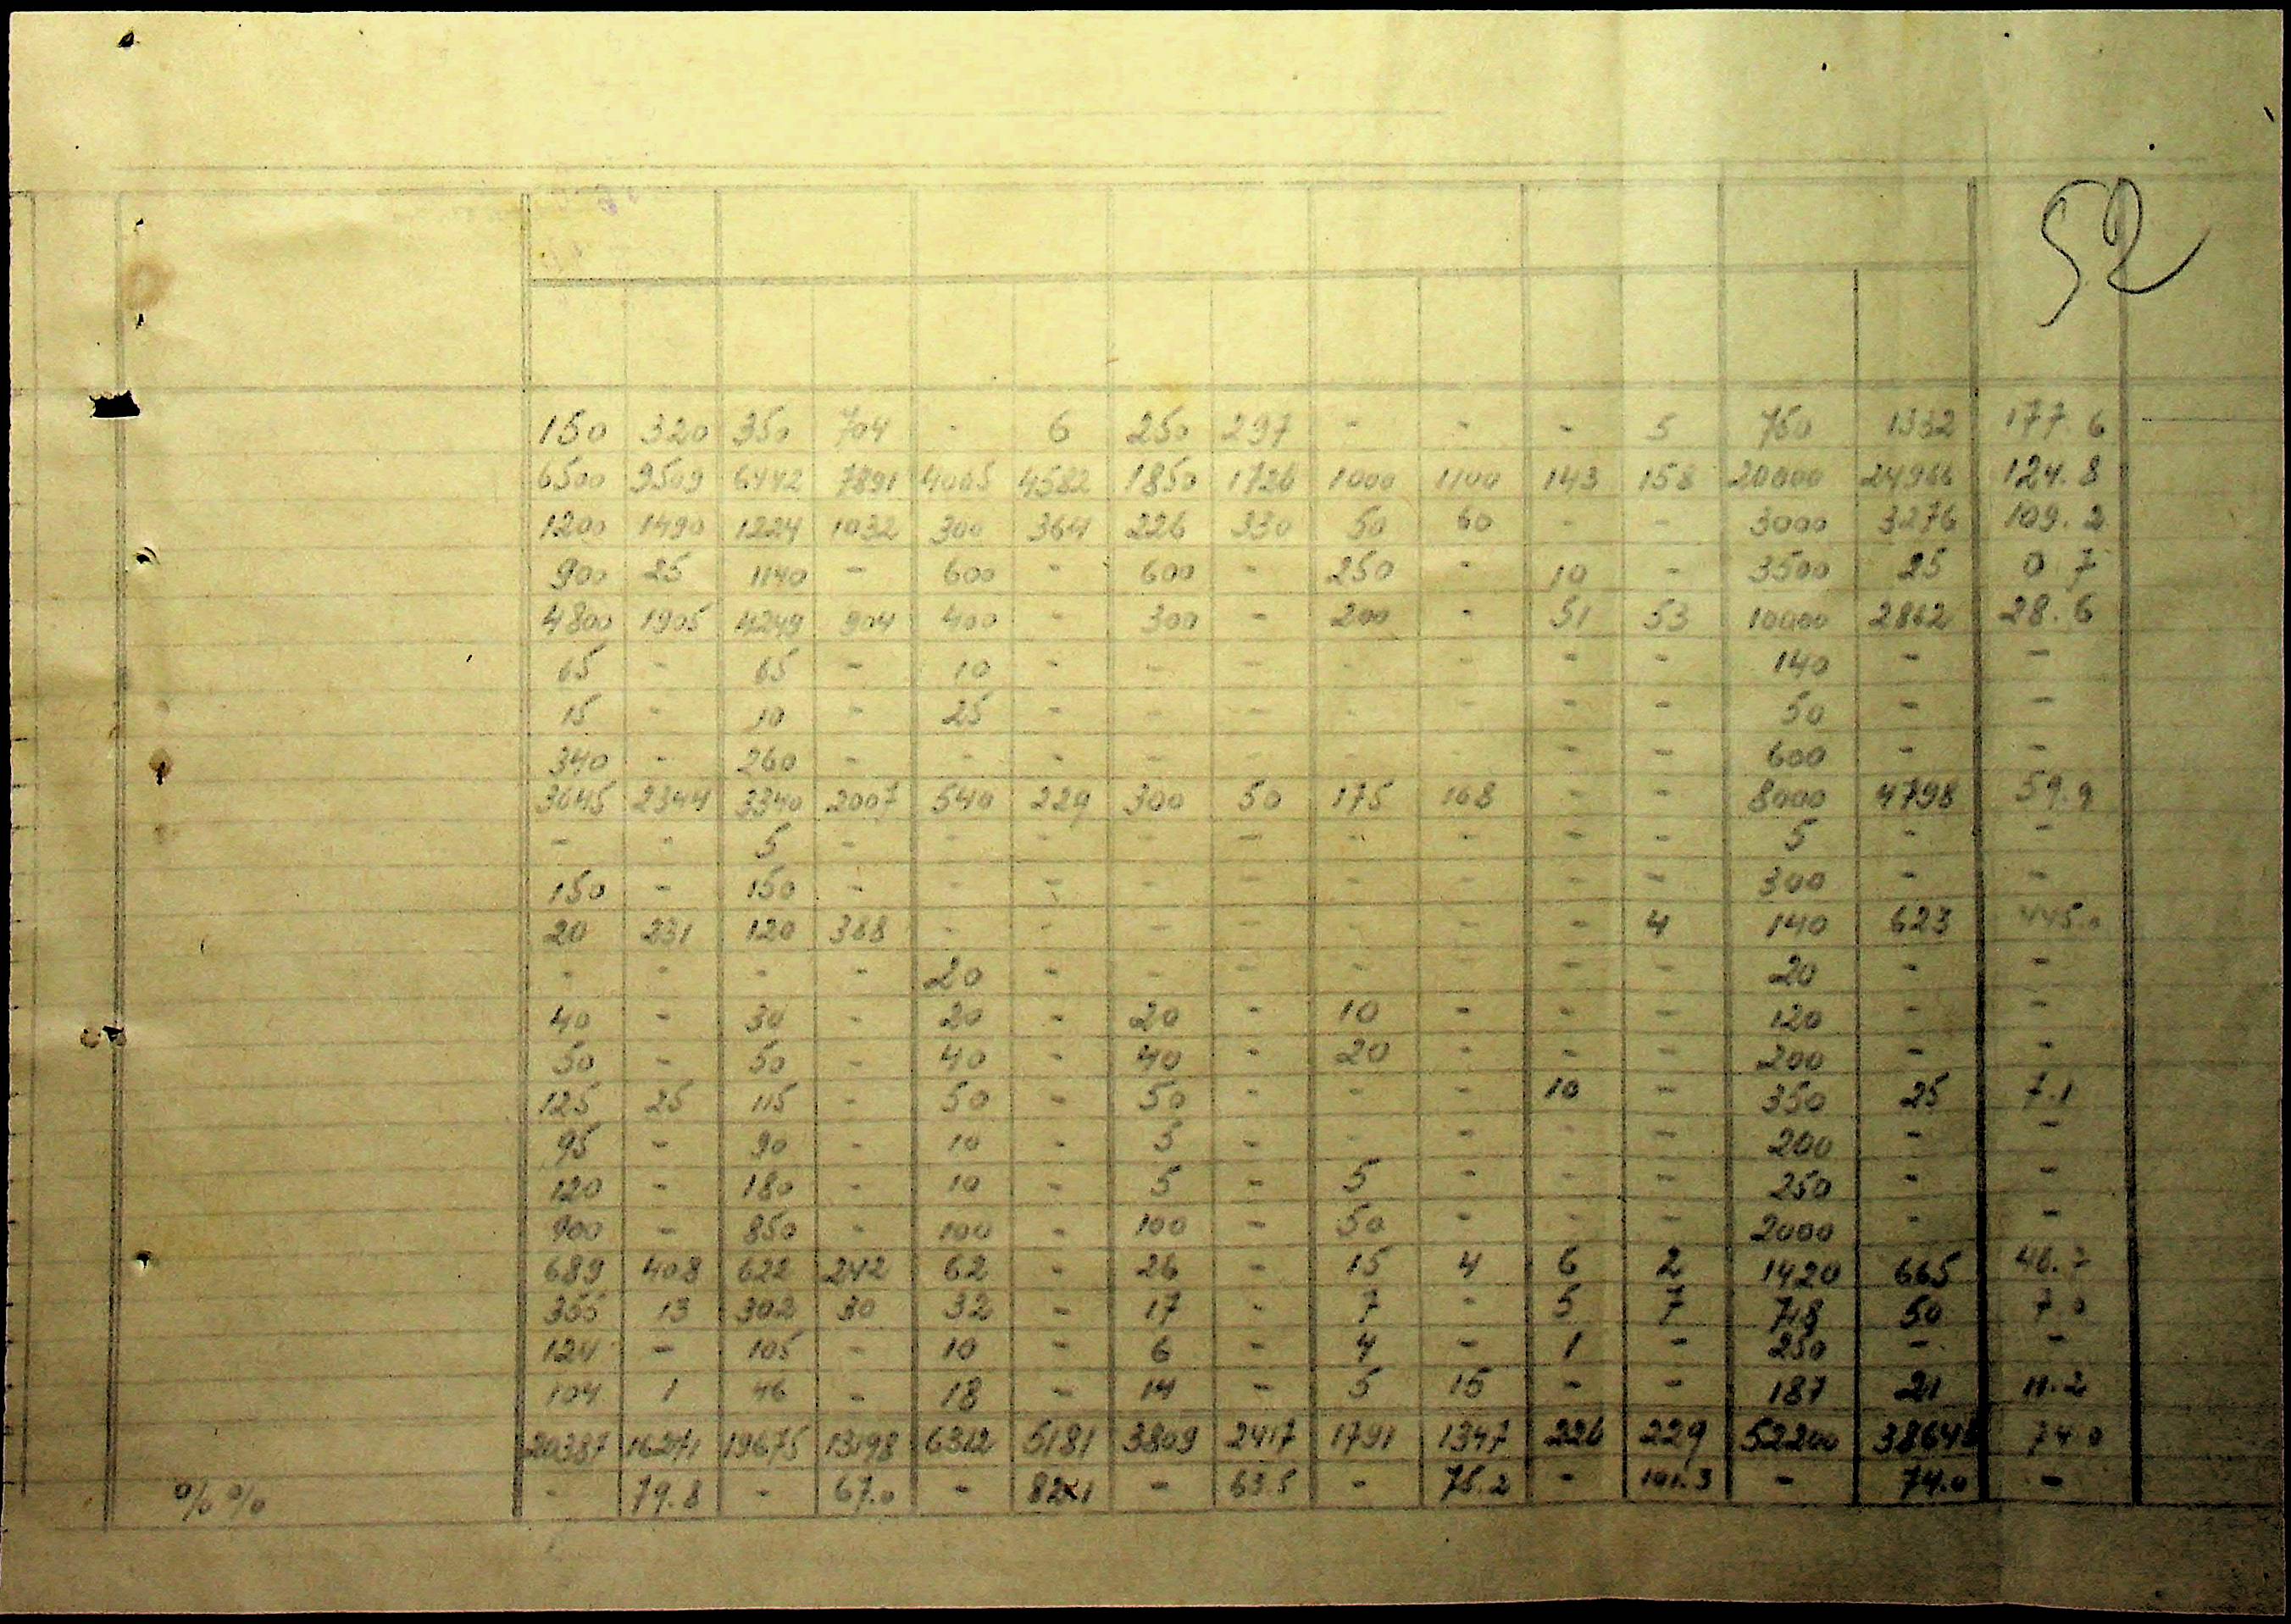 52
150 320 350 704 - 6 250 297 - - - 5 750 1332 177.6
6500 9509 6442 7891 4065 4582 1850 1726 1000 1100 143 158 20000 24966 124.8
1200 1490 1224 1032 300 364 226 330 50 60 - - 3000 3276 109.2
900 25 1140 - 600 - 600 - 250 - 10 - 3500 25 0.7
4800 1905 4249 904 400 - 300 - 200 - 51 53 10000 2862 28.6
65 - 65 - 10 - - - - - - - 140 - -
15 - 10 - 25 - - - - - - - 50 - -
340 - 260 - - - - - - - - - 600 - -
3645 2344 3340 2007 540 229 300 50 175 168 - - 8000 4798 59.9
- - 5 - - - - - - - - - 5 - -
150 - 150 - - - - - - - - - 300 - -
20 231 120 388 - - - - - - - 4 140 623 445.0
- - - - 20 - - - - - - - 20 - -
40 - 30 - 20 - 20 - 10 - - - 120 - -
50 - 50 - 40 - 40 - 20 - - - 200 - -
125 25 115 - 50 - 50 - - - 10 - 350 25 7.1
95 - 90 - 10 - 5 - - - - - 200 - -
120 - 180 - 10 - 5 - 5 - - - 250 - -
900 - 850 - 100 - 100 - 50 - - - 2000 - -
689 408 622 242 62 - 26 - 15 4 6 2 1420 665
355 13 302 30 32 - 17 - 7 - 5 7 718 50 7.0
124 - 105 - 10 - 6 - 4 - 1 - 250 - -
104 1 46 - 18 - 14 - 5 15 - - 187 21 11.2
20387 16271 19675 13198 6312 5181 3809 2417 1791 1347 226 229 52200 38648 74.0
% % - 79.8 - 67.0 - 82.1 - 63.5 - 75.2 - 101.3 - 74.0 -